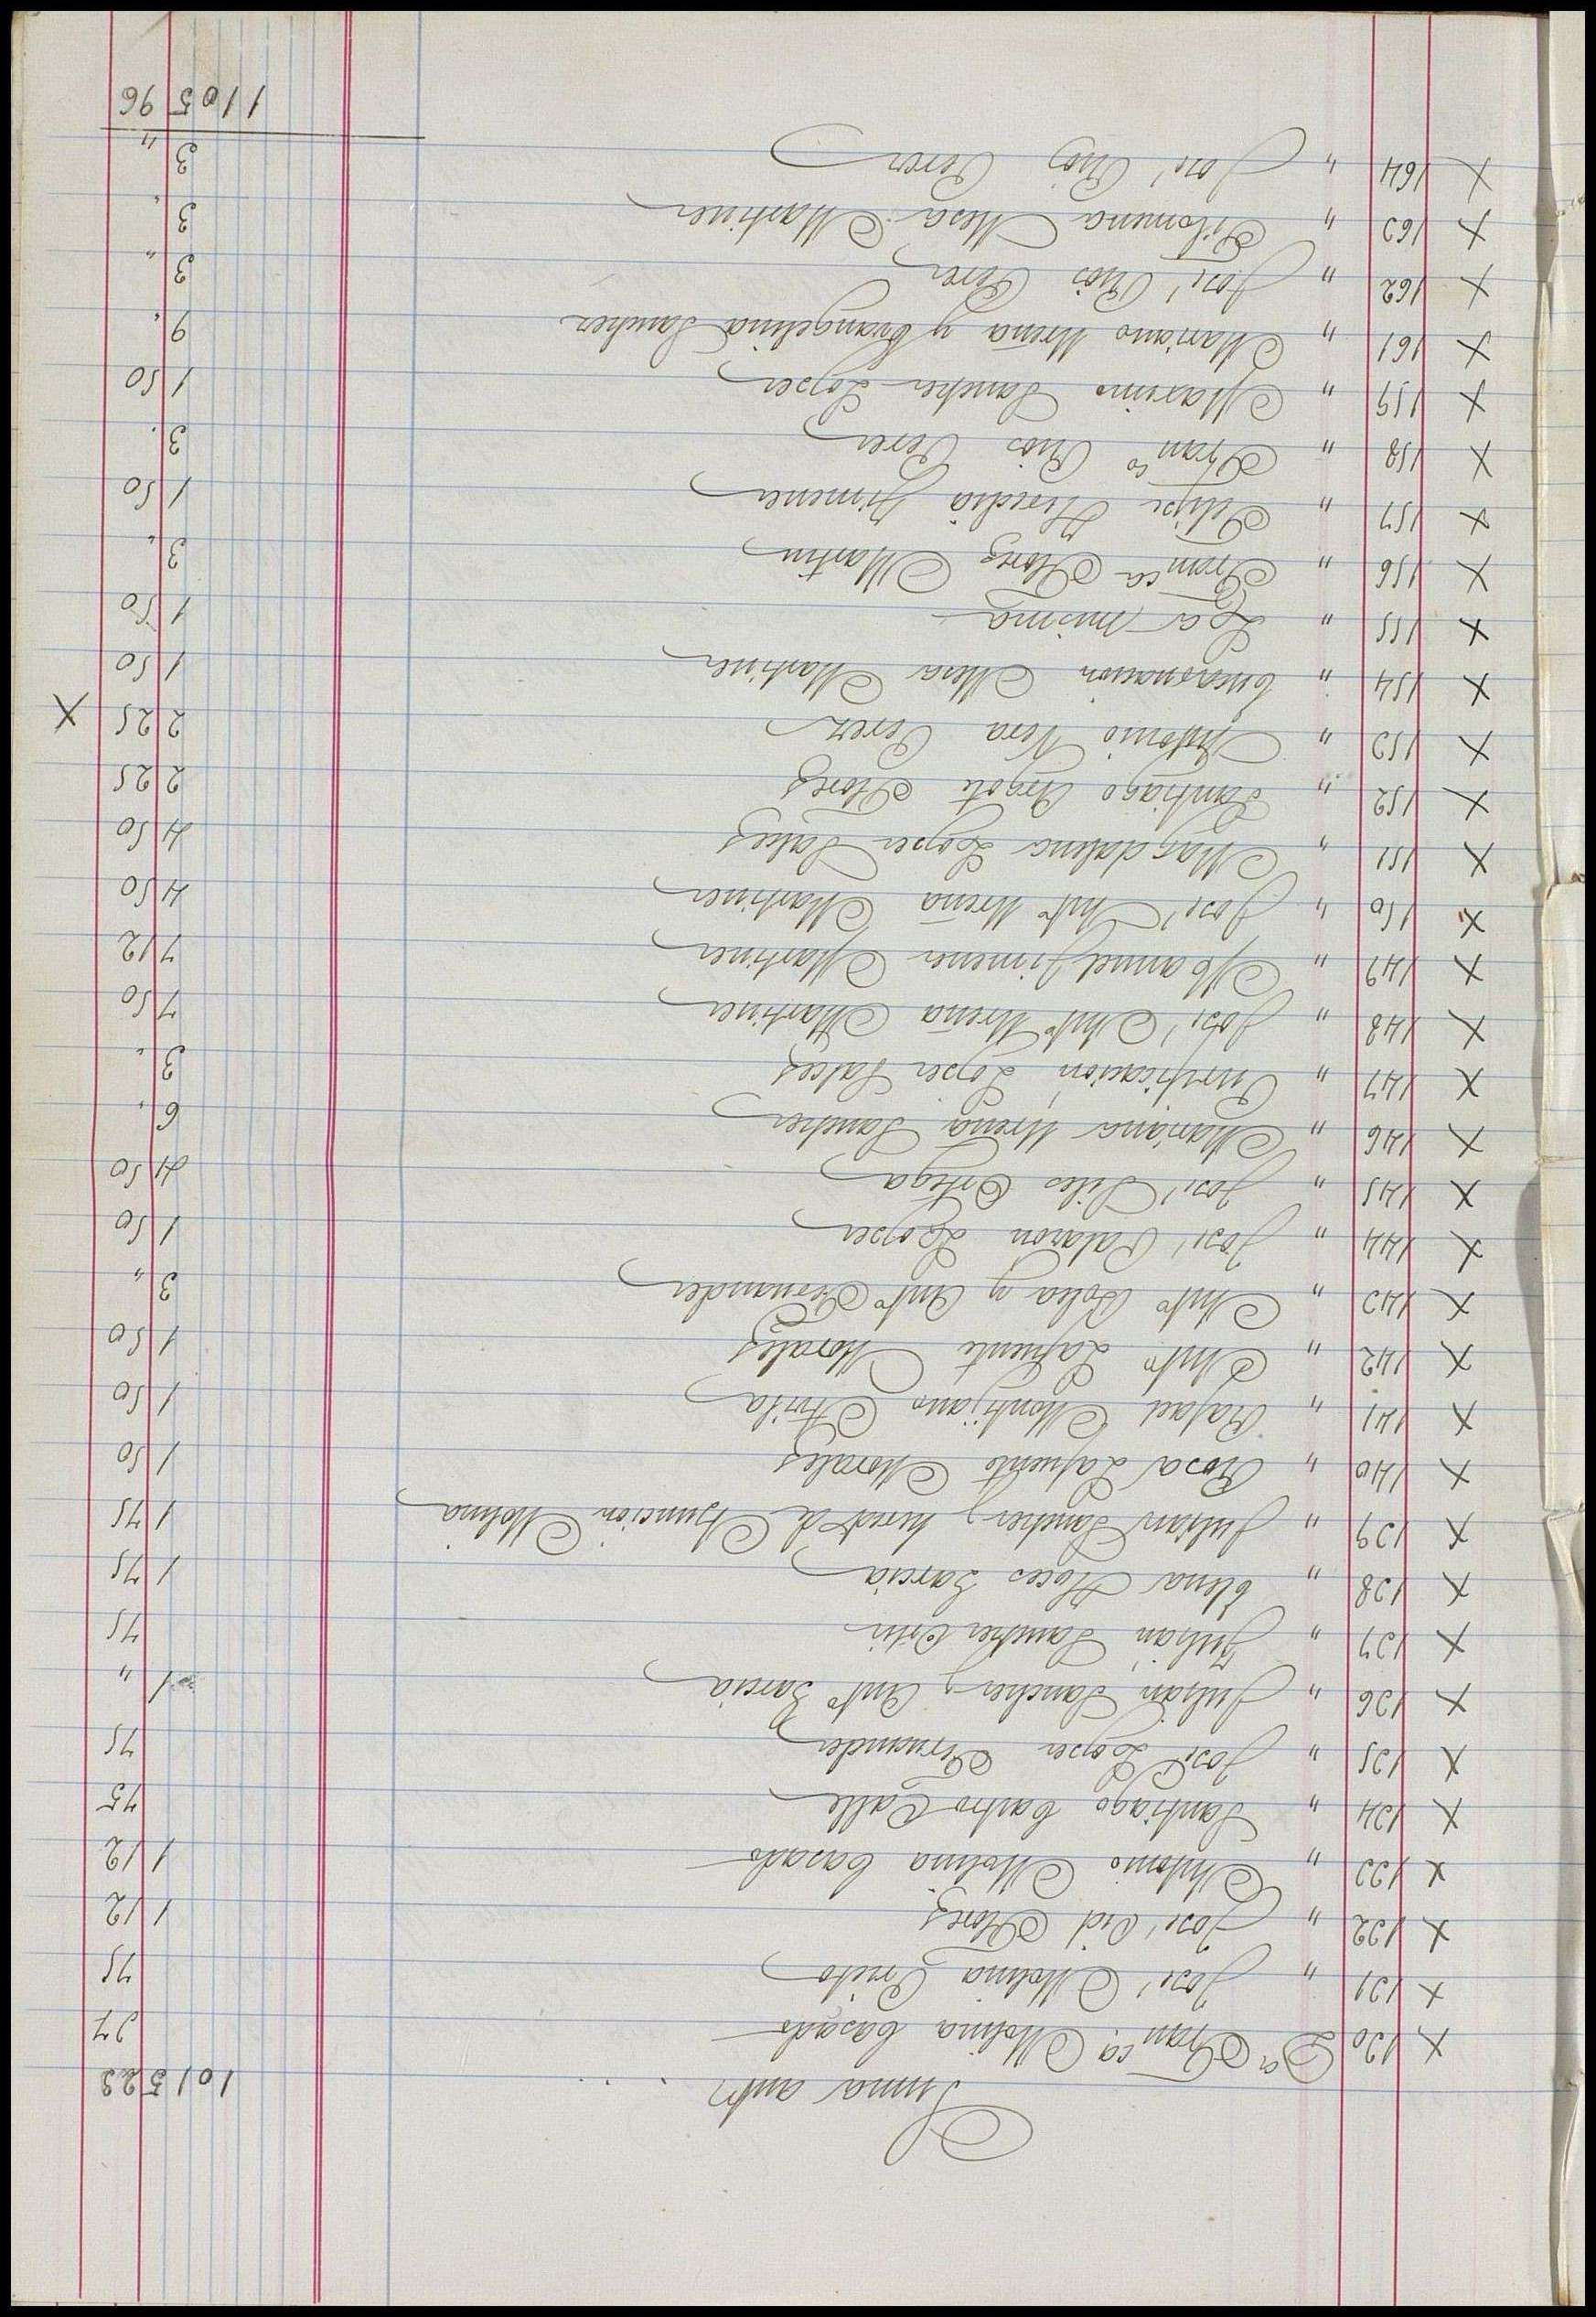 Suma antr . . . 1015 23
X 130 Dª Franca Molina Casado 37
X 131 " José Molina Prieto 75
X 132 " José Cid Flores 1 12
X 133 " Antonio Molina Casado 1 12
X 134 " Santiago Castro Calle 75
X 135 " José Lopez Fernandez 75
X 136 " Julian Sanchez y Antº Garcia 1 "
X 137 " Julian Sanchez Ortiz 75
X 138 " Elena Hoces Garcia 1 75
X 139 " Julian Sanchez y hered de Asuncion Molina 1 75
X 140 " Rosa Lafuente Morales 1 50
X 141 " Rafael Montijano Avila 1 50
X 142 " Antº Lafuente Morales 1 50
X 143 " Antº Bolea y Antº Fernandez 3 "
X 144 " José Palazon Lopez 1 50
X 145 " José Siles Ortega 4 50
X 146 " Mariana Ureña Sanchez 6 "
X 147 " Purificacion Lopez Salces 3 "
X 148 " José Antº Ureña Martinez 7 50
X 149 " Manuel Jimenez Martinez 7 12
X 150 " José Antº Ureña Martinez 4 50
X 151 " Magdalena Lopez Salces 4 50
X 152 " Santiago Argote Flores 2 25
X 153 " Antonio Vera Perez 2 25 X
X 154 " Encarnacion Mesa Martinez 1 50
X 155 " La misma 1 50
X 156 " Franca Flores Martin 3 "
X 157 " Felipe Heredia Jimenez 1 50
X 158 " Franco Rios Perez 3 "
X 159 " Maximo Sanchez Lopez 1 50
X 161 " Mariano Ureña y Evangelina Sanchez 9 "
X 162 " José Rios Perez 3 "
X 163 " Filomena Mesa Martinez 3 "
X 164 " José Rios Perez 3 "
1105 96